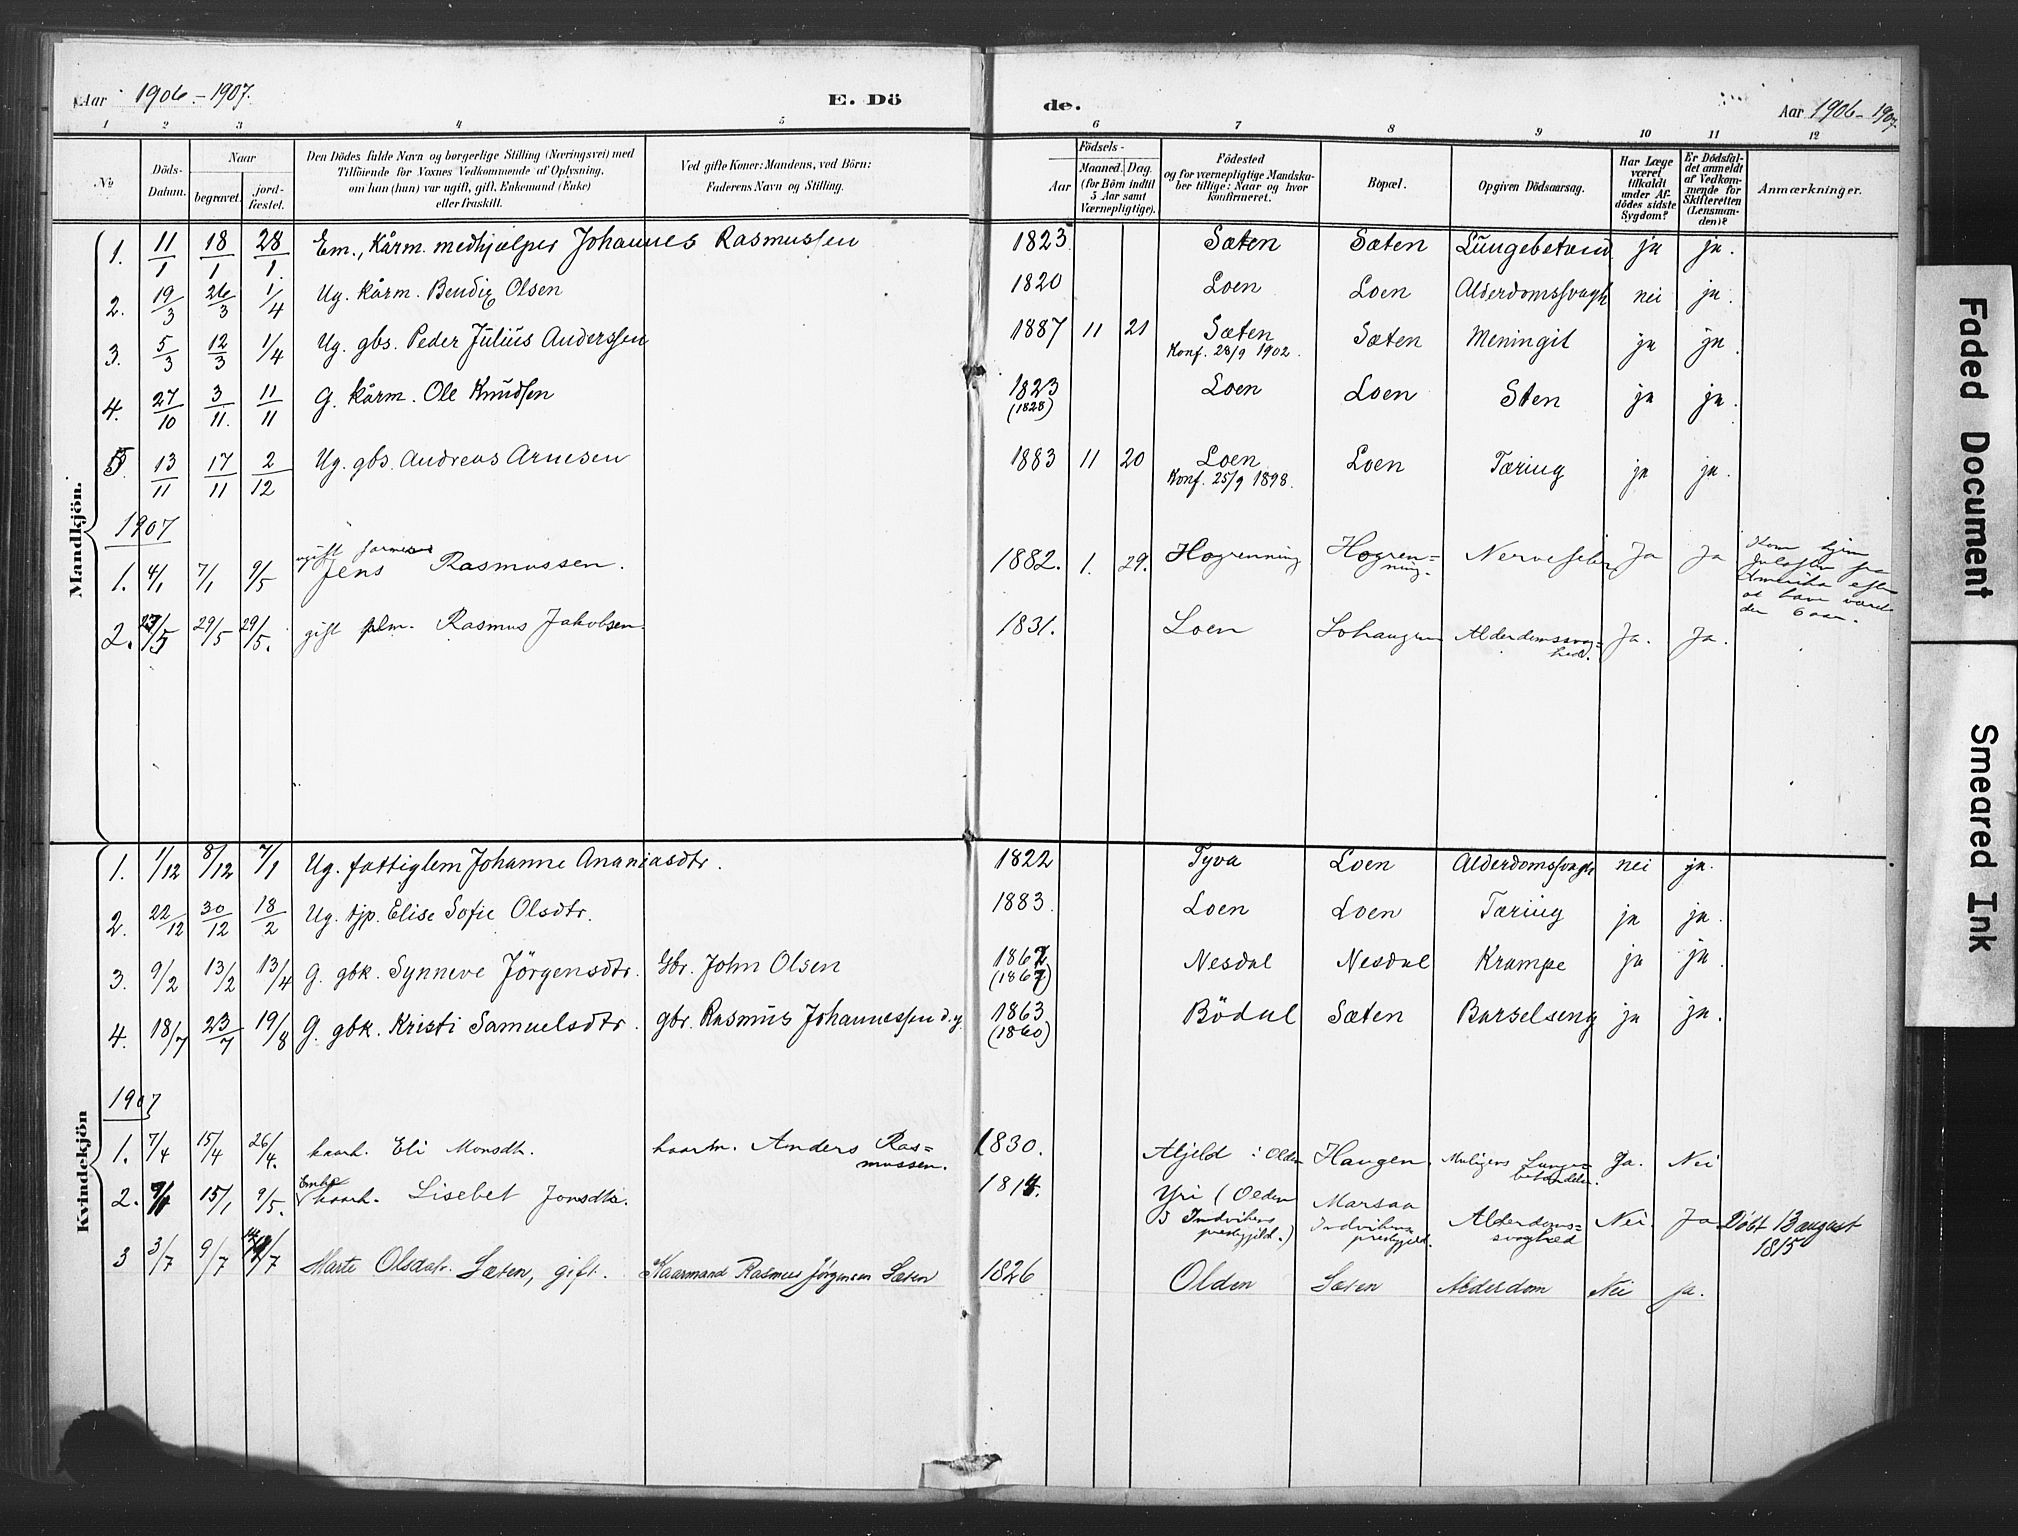 Aar 1906-1907. E. Dö de. Aar 1906-1907.
1 2 3 4 5 6 7 8 9 10 11 12
No
Döds-Datum.
Naar
begravet.
jord-fæstet.
Den Dödes fulde Navn og borgerlige Stilling (Næringsvei) med
Tilföiende for Voxnes Vedkommende af Oplysning,
om han (hun) var ugift, gift, Enkemand (Enke)
eller fraskilt.
Ved gifte Koner: Mandens, ved Börn:
Faderens Navn og Stilling.
Födsels-
Aar
Maaned. Dag.
(for Börn indtil
5 Aar samt
Værnepligtige).
Födested
og for værnepligtige Mandska-
ber tillige: Naar og hvor
konfirmeret.
Bopæl.
Opgiven Dödsaarsag.
Har Læge
været
tilkaldt
under Af-
dödes sidste
Sygdom?
Er Dödsfal-
det anmeldt
af Vedkom-
mende for
Skifteretten
(Lensman-
den)?
Anmærkninger.
Mandkjön.
1. 11/1 18/1 28/1 Em., kårm. medhjælper Johannes Rasmussen 1823 Sæten Sæten Lungebetænd ja ja.
2. 19/3 26/3 1/4 Ug. kårm. Bendix Olsen 1820 Loen Loen Alderdomssvagh nei ja.
3. 5/3 12/3 1/4 Ug. gbs. Peder Julius Anderssen 1887 11 21 Sæten Sæten Meningit ja ja.
Konf. 28/9 1902.
4. 27/10 3/11. 11/11 G. kårm. Ole Knudsen 1823 Loen Loen Sten ja ja.
(1828)
5. 13/11 17/11 2/12 Ug. gbs. Andreas Arnesen 1883 11 20 Loen Loen Tæring ja ja.
Konf. 25/9 1898.
1907
ugift
1. 4/1 7/1 9/5 Jens Rasmussen. 1882. 1. 29. Hogrenning Hogren-
ning. Ja Ja
Kom hjem
Juleaften fra
Amerika efter
at have været
der 6 aar.
2. 29/5 29/5. gift Rasmus Jakobsen. 1831. Loen Alderdomssvag-
hed. Ja. Ja.
Kvindekjön
1. 1/12 8/12 7/1 Ug. fattiglem Johanne Ananiasdtr. 1822 Tyva Loen Alderdomssvagh nei ja.
2. 22/12 30/12 18/2 Ug. tjp. Elise Sofie Olsdtr. 1883 Loen Loen Tæring ja ja.
3. 9/2 13/2 13/4 G. gbk. Synneve Jörgensdtr. Gbr. John Olsen 1867 Nesdal Nesdal Krampe ja ja.
4. 18/7 23/7 19/8 G. gbk. Kristi Samuelsdtr. gbr. Rasmus Johannessen d.y. 1863 Bödal Sæten Barselseng ja ja.
(1860)
1907
1. 7/4 15/4 26/4. kaark. Eli Monsdtr. kaarm. Anders Ras-
mussen. 1830. i Olden Haugen Muligens Lunge-
betændelse. Ja. Nei
2. 15/1 9/5. Enke kaark. Lisebet Jonsdtr. 1814. Yri (Olden
i Indvikens
prestgjeld.) Marsaa
Indvikens
prestgjeld. Alderdoms-
svaghed Nei. Ja Döbt 13 august
1815
3 3/7 9/7 Marte Olsdatr. Sæten, gift. Kaarmand Rasmus Jørgensen Sæten 1826 Olden Sæten Alderdom Nei ja.
Faded Document
Smeared Ink